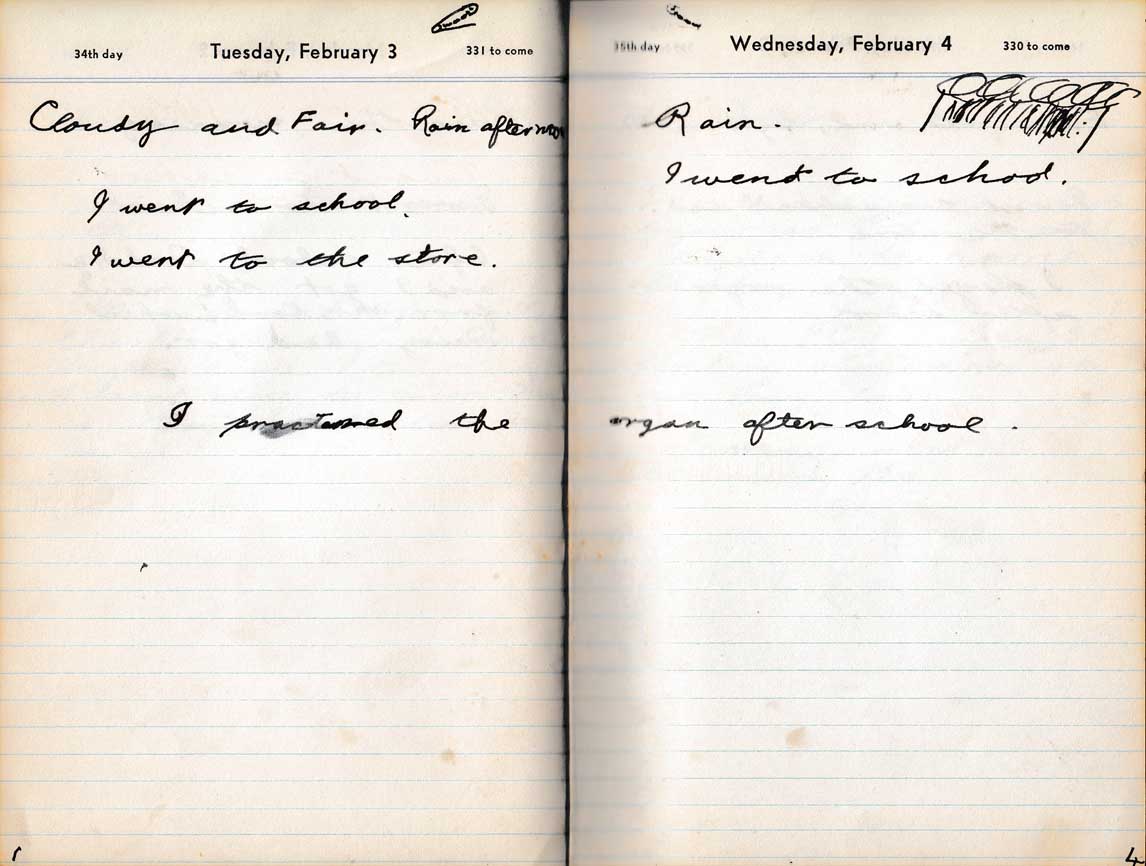 34th day
Tuesday, February 3
331 to come
Cloudy and Fair. Rain afternoon
I went to school.
I went to the store.
I practised the
1
35th day
Wednesday, February 4
330 to come
Rain.
I went to school.
organ after school.
4